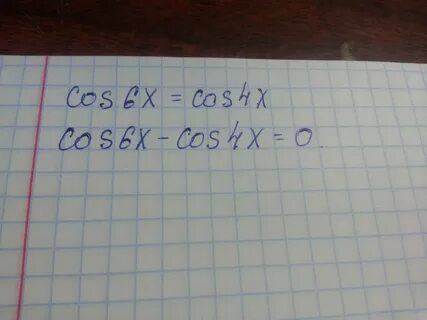 cos6x = cos4x
cos6x - cos4x = 0.